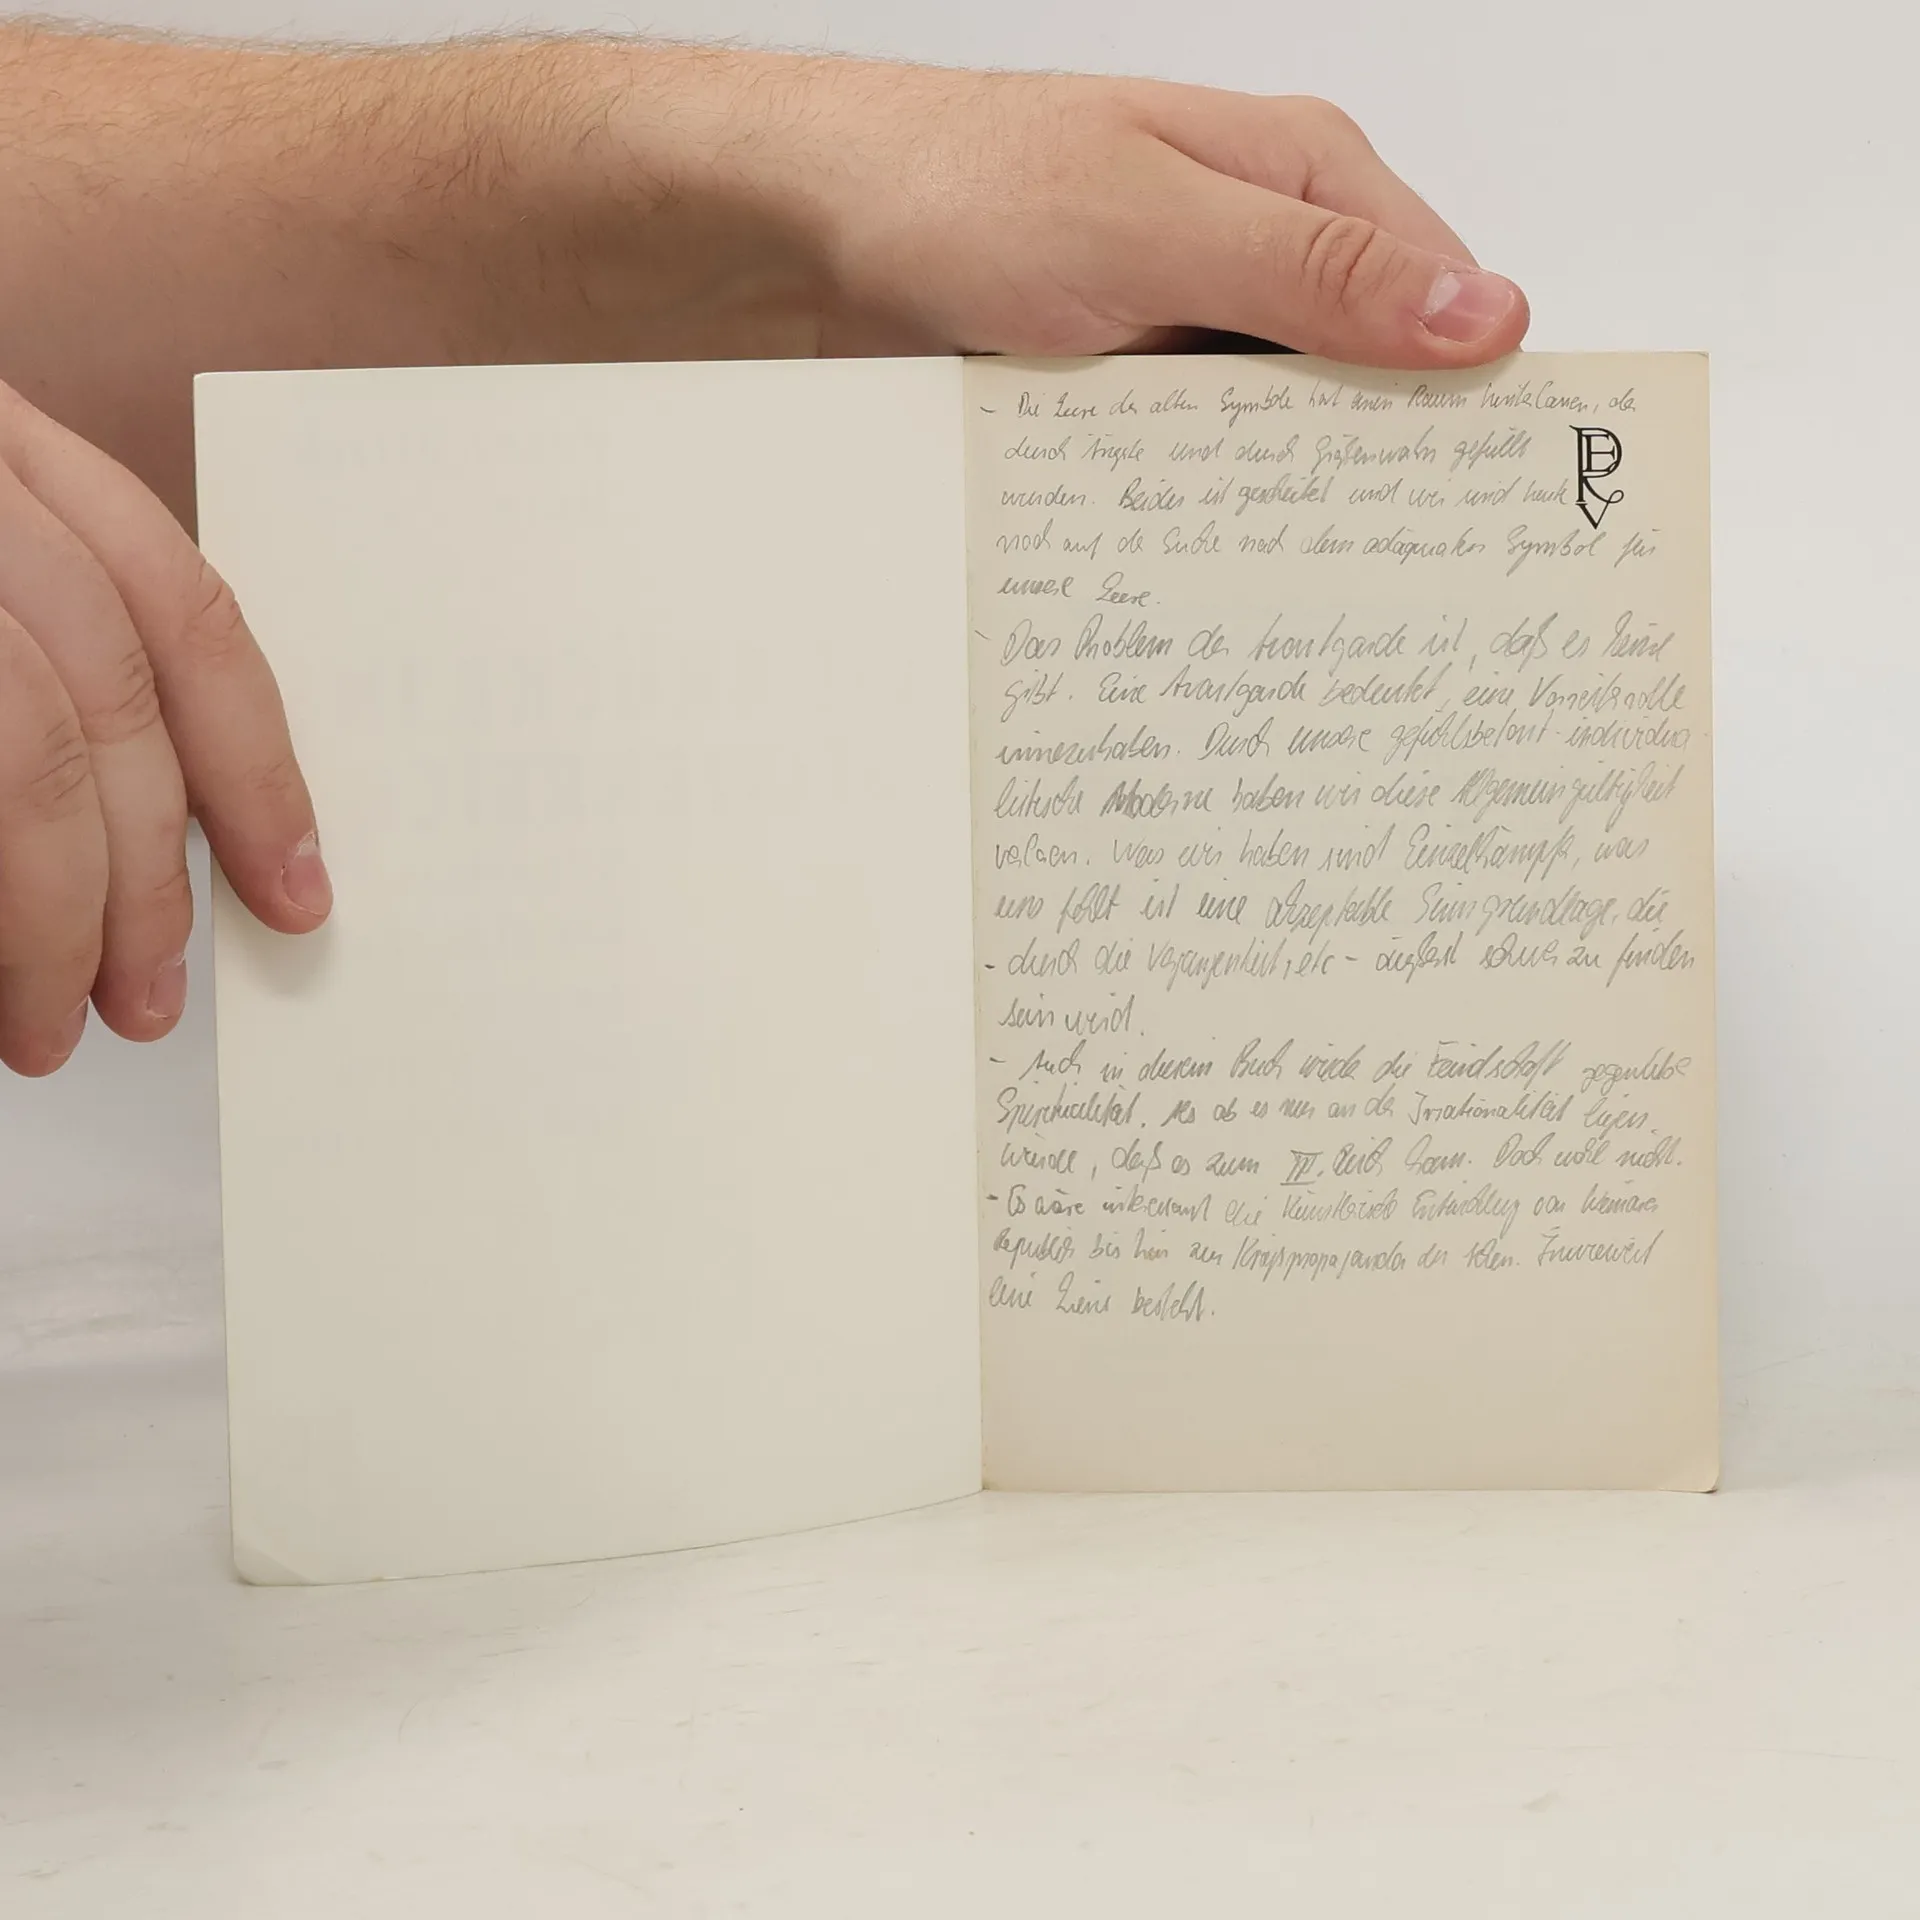 - Die Leere der alten Symbole hat einen Raum hinterlassen, der
durch Ängste und durch Größenwahn gefüllt
wurden. Beides ist gescheitert und wir sind heute
noch auf der Suche nach dem adäquaten Symbol für
unsere Leere.
- Das Problem der Avantgarde ist, daß es keine
gibt. Eine Avantgarde bedeutet, eine Vorreiterrolle
innezuhaben. Durch unsere gefühlsbetont-individua
listische Moderne haben wir diese Allgemeingültigkeit
verloren. Was wir haben sind Einzelkämpfe, was
uns fehlt ist eine akzeptable Sinngrundlage, die
- durch die Vergangenheit, etc - äußerst schwer zu finden
sein wird.
- Auch in diesem Buch wieder die Feindschaft gegenüber
Spiritualität. Als ob es nur an der Irrationalität liegen
würde, daß es zum III. Reich kam. Doch wohl nicht.
- Es wäre interessant die künstlerische Entwicklung von Weimarer
Republik bis hin zur Kriegspropaganda der Inwieweit
eine Linie besteht.
PERV